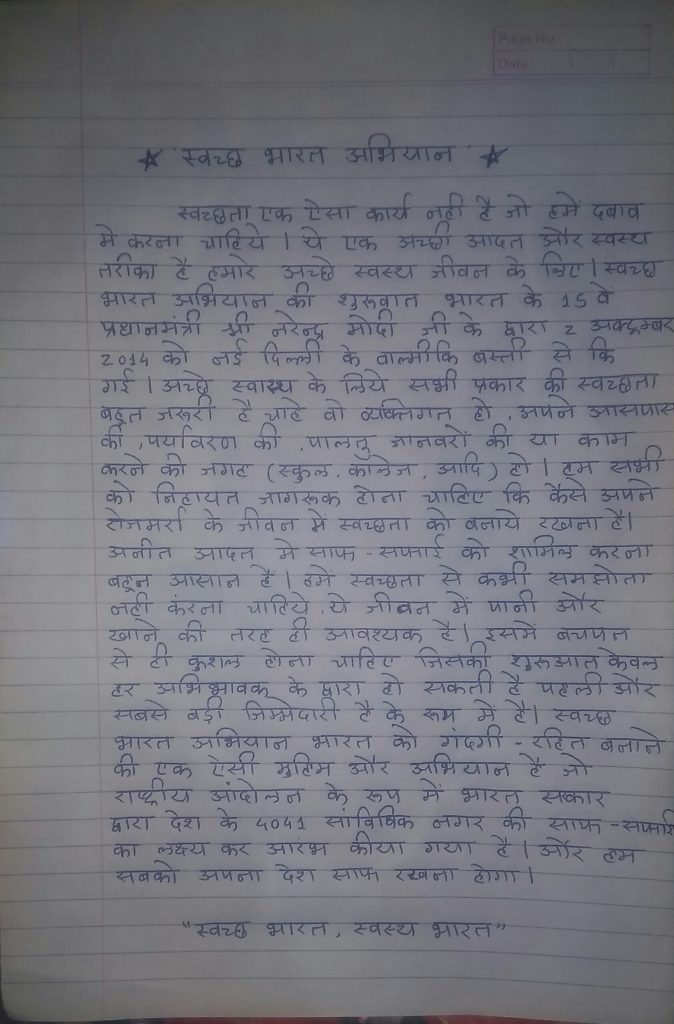 Page No.
Date
★ स्वच्छ भारत अभियान ★
स्वच्छता एक ऐसा कार्य नही है जो हमें दबाव
मे करना चाहिये । ये एक अच्छी आदत और स्वस्थ
तरीका है हमारे अच्छे स्वस्थ जीवन के लिए । स्वच्छ
भारत अभियान की शुरूवात भारत के 15 वे
प्रधानमंत्री श्री नरेन्द्र मोदी जी के द्वारा 2 अक्टूम्बर
2014 को नई दिल्ली के वाल्मीकि बस्ती से कि
गई । अच्छे स्वास्थ्य के लिये सभी प्रकार की स्वच्छता
बहुत जरूरी है चाहे वो व्यक्तिगत हो , अपने आसपास
की , पर्यावरण की , पालतु जानवरों की या काम
करने की जगह (स्कुल , कॉलेज , आदि) हो । हम सभी
को निहायत जागरूक होना चाहिए कि कैसे अपने
रोजमर्रा के जीवन मे स्वच्छता को बनाये रखना है।
आदत में साफ - सफाई को शामिल करना
बहुत आसान है । हमें स्वच्छता से कभी समझोता
नही करना चाहिये , ये जीवन में पानी और
खाने की तरह ही आवश्यक है । इसमें बचपन
से ही कुशल होना चाहिए जिसकी शुरूआत केवल
हर अभिभावक के द्वारा हो सकती है पहली और
सबसे बड़ी जिम्मेदारी है के रूप में है । स्वच्छ
भारत अभियान भारत को गंदगी - रहित बनाने
की एक ऐसी मुहिम और अभियान है जो
राष्ट्रीय आंदोलन के रूप में भारत सरकार
द्वारा देश के 4041 सांविधिक नगर की साफ - सफाई
का लक्ष्य कर आरंभ कीया गया है । और हम
सबको अपना देश साफ रखना होगा ।
"स्वच्छ भारत , स्वस्थ भारत"